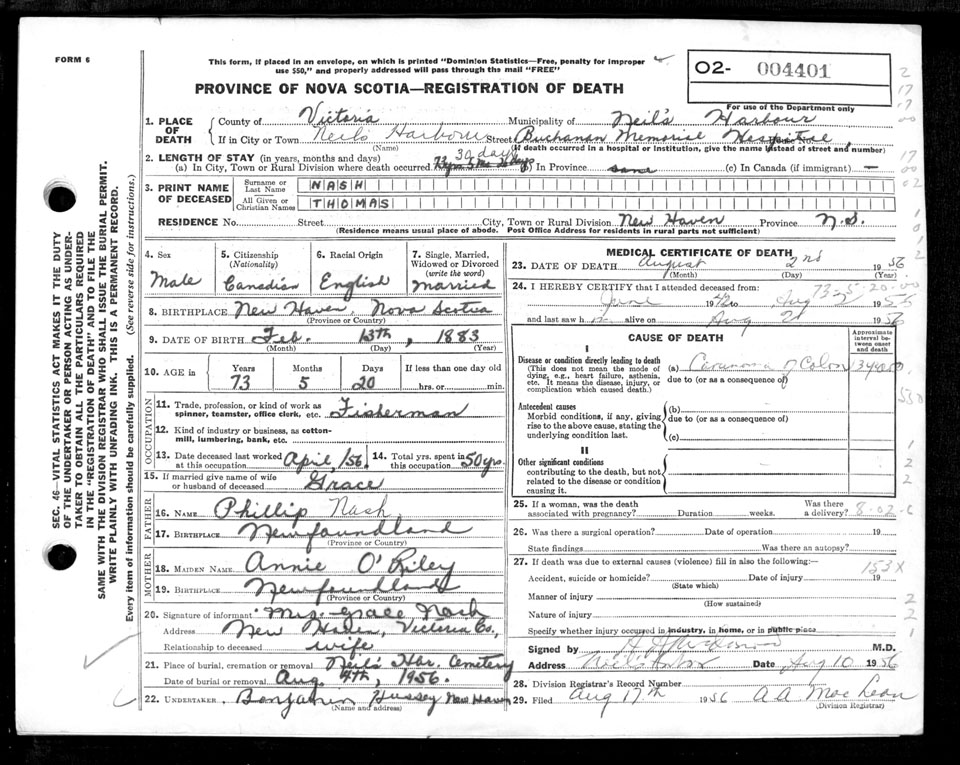 FORM 6
This form, if placed in an envelope, on which is printed "Dominion Statistics—Free, penalty for improper
use $50," and properly addressed will pass through the mail "FREE"
O2- 004401
For use of the Department only
PROVINCE OF NOVA SCOTIA—REGISTRATION OF DEATH
SEC. 46—VITAL STATISTICS ACT MAKES IT THE DUTY
OF THE UNDERTAKER OR PERSON ACTING AS UNDER-
TAKER TO OBTAIN ALL THE PARTICULARS REQUIRED
IN THE "REGISTRATION OF DEATH" AND TO FILE THE
SAME WITH THE DIVISION REGISTRAR WHO SHALL ISSUE THE BURIAL PERMIT.
WRITE PLAINLY WITH UNFADING INK. THIS IS A PERMANENT RECORD.
Every item of information should be carefully supplied. (See reverse side for instructions.)
1. PLACE OF DEATH
County of Victoria Municipality of Neil's Harbour
If in City or Town Neils Harbour Street Buchanan Memorial Hospital House No.
(Name) (If death occurred in a hospital or institution, give the name instead of street and number)
2. LENGTH OF STAY (in years, months and days)
(a) In City, Town or Rural Division where death occurred 30 days (b) In Province same (c) In Canada (if immigrant) —
3. PRINT NAME OF DECEASED
Surname or Last Name NASH
All Given or Christian Names THOMAS
RESIDENCE No. Street City, Town or Rural Division New Haven Province N.S.
(Residence means usual place of abode. Post Office Address for residents in rural parts not sufficient)
4. Sex Male
5. Citizenship (Nationality) Canadian
6. Racial Origin English
7. Single, Married, Widowed or Divorced (write the word) Married
8. BIRTHPLACE New Haven, Nova Scotia
(Province or Country)
9. DATE OF BIRTH Feb. 13th, 1883
(Month) (Day) (Year)
10. AGE in Years 73 Months 5 Days 20 If less than one day old hrs. or min.
OCCUPATION
11. Trade, profession, or kind of work as spinner, teamster, office clerk, etc. Fisherman
12. Kind of industry or business, as cotton-mill, lumbering, bank, etc.
13. Date deceased last worked at this occupation April, /56 14. Total yrs. spent in this occupation 50 yrs.
15. If married give name of wife or husband of deceased Grace
FATHER
16. NAME Phillip Nash
17. BIRTHPLACE Newfoundland
(Province or Country)
MOTHER
18. MAIDEN NAME Annie O'Riley
19. BIRTHPLACE Newfoundland
(Province or Country)
20. Signature of informant Mrs. Grace Nash
Address New Haven, Victoria Co.,
Relationship to deceased wife
21. Place of burial, cremation or removal Neil's Har. Cemetery
Date of burial or removal Aug. 4th, 1956.
22. UNDERTAKER Benjamin Hussey New Haven
(Name and address)
MEDICAL CERTIFICATE OF DEATH
23. DATE OF DEATH August 2nd 1956
(Month) (Day) (Year)
73-5-20-00
24. I HEREBY CERTIFY that I attended deceased from:
June 19 to Aug 2 1956
and last saw h alive on Aug 2 1956
CAUSE OF DEATH
Approximate interval between onset and death
I
Disease or condition directly leading to death
(This does not mean the mode of dying, e.g., heart failure, asthenia, etc. It means the disease, injury, or complication which caused death.)
(a) Carcinoma of Colon
due to (or as a consequence of)
Antecedent causes
Morbid conditions, if any, giving rise to the above cause, stating the underlying condition last.
(b)
due to (or as a consequence of)
(c)
II
Other significant conditions
contributing to the death, but not related to the disease or condition causing it.
25. If a woman, was the death associated with pregnancy? Duration weeks. Was there a delivery? 8-02-6
26. Was there a surgical operation? Date of operation 19
State findings Was there an autopsy?
27. If death was due to external causes (violence) fill in also the following:—
153X
Accident, suicide or homicide? Date of injury 19
(State which)
Manner of injury
(How sustained)
Nature of injury
Specify whether injury occurred in industry, in home, or in public place
Signed by M.D.
Address Neils Harbor Date Aug 10 1956
28. Division Registrar's Record Number
29. Filed Aug 17th 1956 A A MacLean
(Division Registrar)